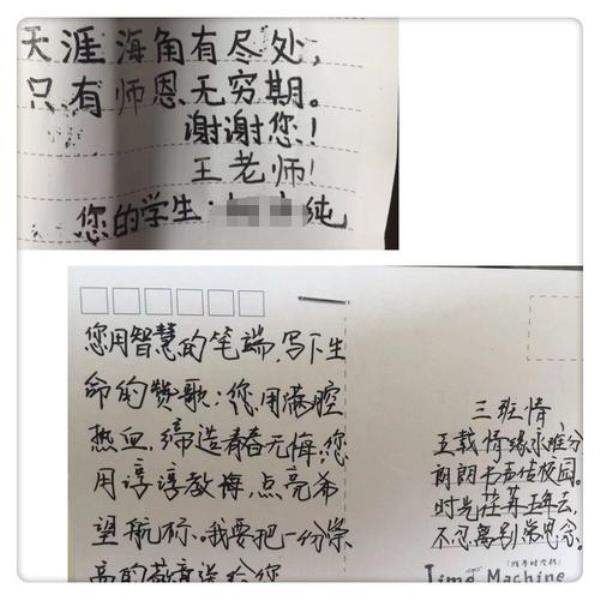 天涯海角有尽处,
只有师恩无穷期。
谢谢您!
王老师!
您的学生: 纯
您用智慧的笔端,写下生
命的赞歌;您用满腔
热血,缔造青春无悔;您
用谆谆教诲,点亮希
望航标。我要把一份崇
高的敬意送给您
三班情
五载情缘永难分
朗朗书声传校园。
时光荏苒五年去,
不忍离别
Time Machine